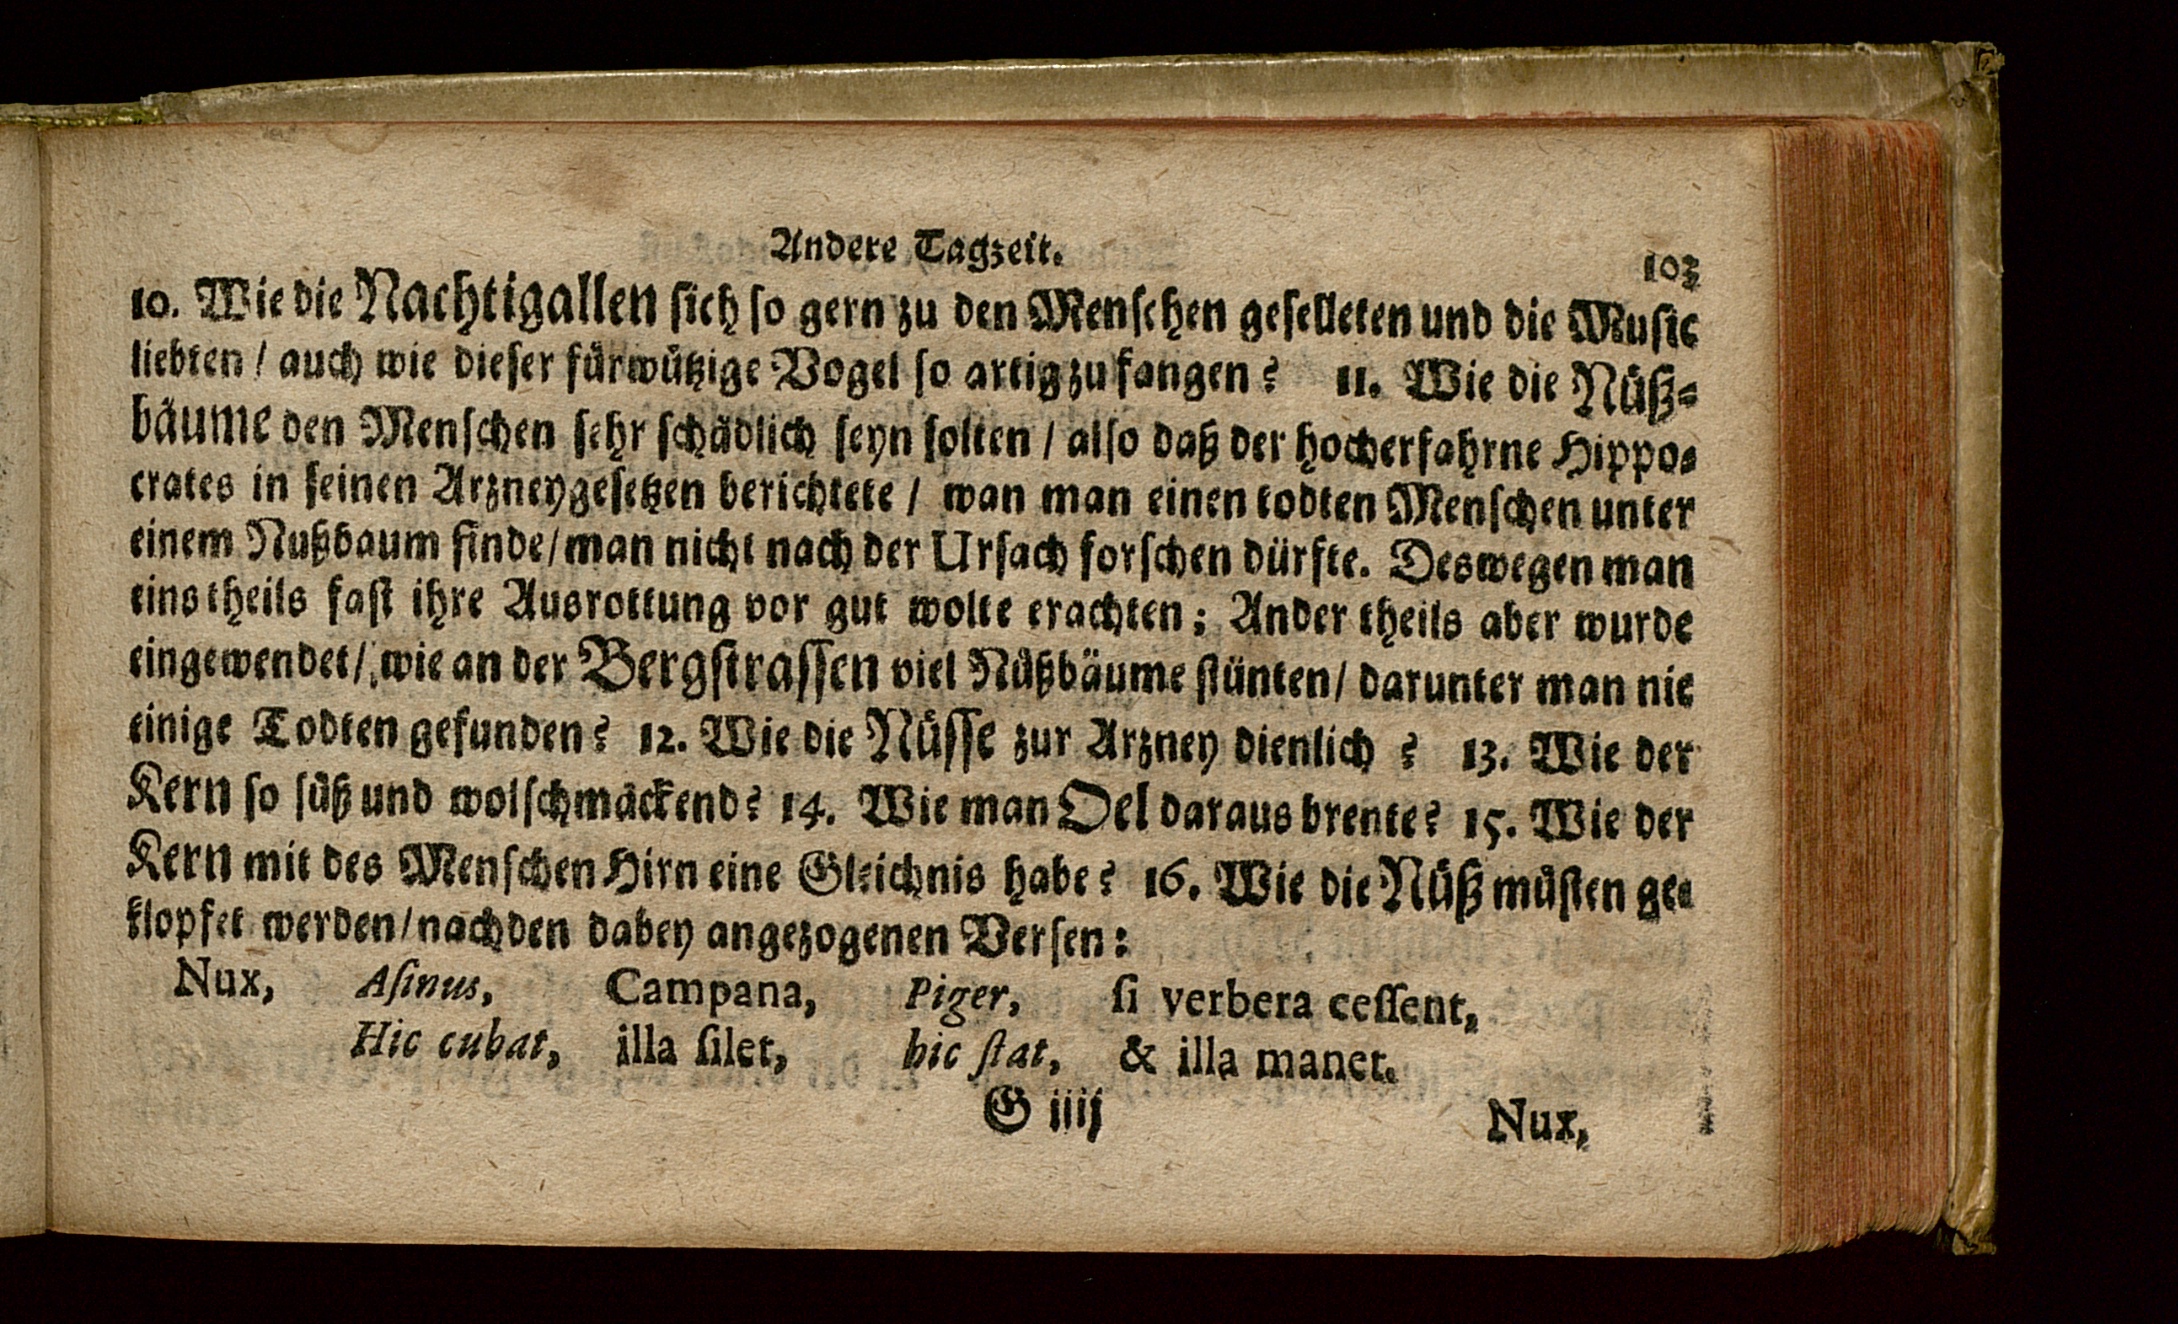 Andere Tagzeit.
103
10. Wie die Nachtigallen ſich ſo gern zu den Menſchen geſelleten und die Muſic
liebten / auch wie dieſer fürwützige Vogel ſo artig zu fangen? 11. Wie die Nüß-
bäume den Menſchen ſehr ſchädlich ſeyn ſolten / alſo daß der hocherfahrne Hippo-
crates in ſeinen Arzneygeſetzen berichtete / wan man einen todten Menſchen unter
einem Nußbaum finde / man nicht nach der Urſach forſchen dürfte. Deswegen man
eins theils faſt ihre Ausrottung vor gut wolte erachten; Ander theils aber wurde
eingewendet / wie an der Bergſtraſſen viel Nüßbäume ſtünten / darunter man nie
einige Todten gefunden? 12. Wie die Nüſſe zur Arzney dienlich? 13. Wie der
Kern ſo ſüß und wolſchmäckend? 14. Wie man Oel daraus brente? 15. Wie der
Kern mit des Menſchen Hirn eine Gleichnis habe? 16. Wie die Nüß müſten ge-
klopfet werden / nach den dabey angezogenen Verſen:
Nux, Aſinus, Campana, Piger, ſi verbera ceſſent,
Hic cubat, illa ſilet, hic ſtat, & illa manet.
G iiij
Nux,